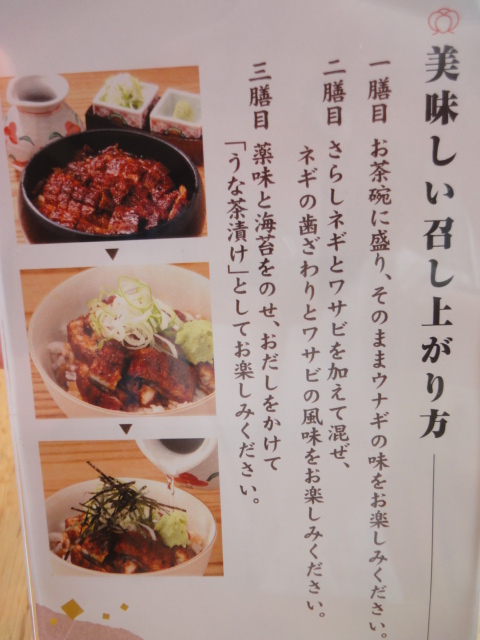 美味しい召し上がり方
一膳目 お茶碗に盛り、そのままウナギの味をお楽しみください。
二膳目 さらしネギとワサビを加えて混ぜ、
ネギの歯ざわりとワサビの風味をお楽しみください。
三膳目 薬味と海苔をのせ、おだしをかけて
「うな茶漬け」としてお楽しみください。